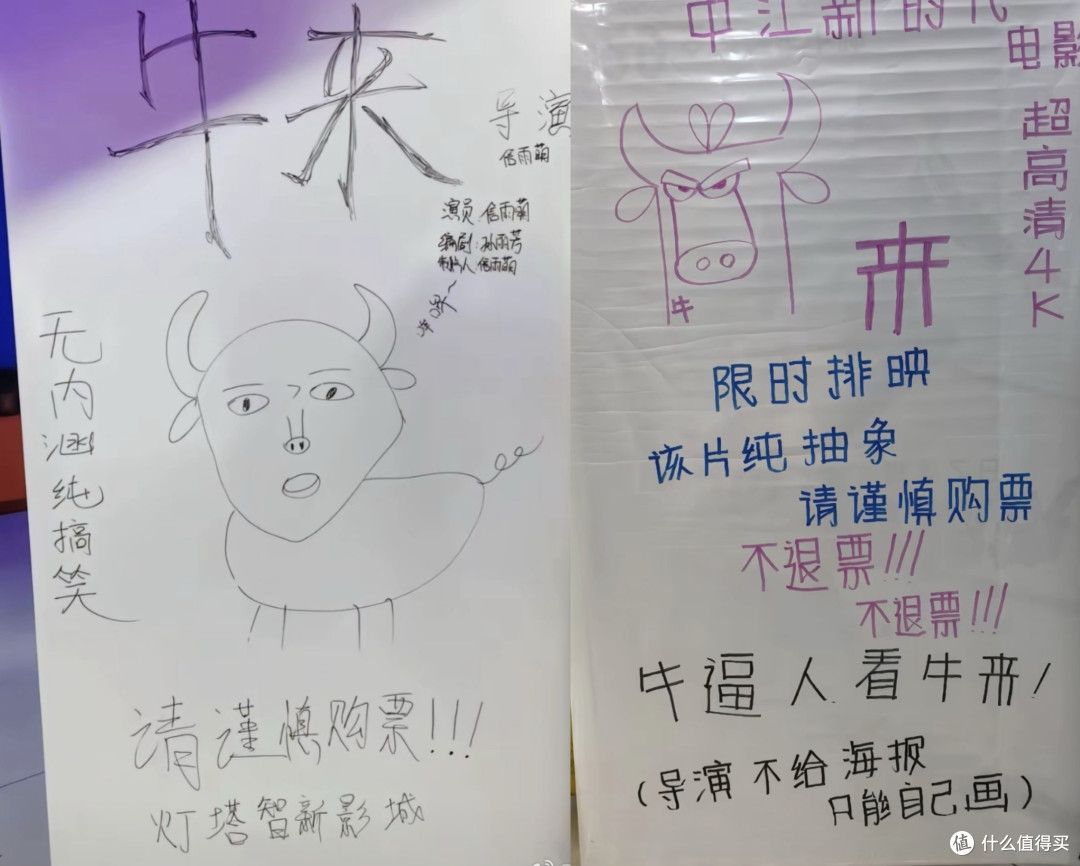 牛来
导演
信雨萌
演员:信雨萌
编剧:孙雨芳
制片人:信雨萌
无内涵纯搞笑
请谨慎购票!!!
灯塔智新影城
中江新时代
电影
超高清4K
牛
来
限时排映
该片纯抽象
请谨慎购票
不退票!!!
不退票!!!
牛逼人看牛来!
(导演不给海报
只能自己画)
值 什么值得买